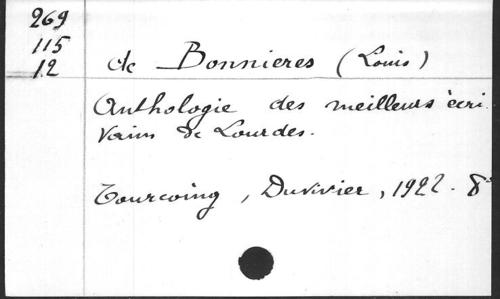 269
115
12
de Bonnieres (Louis)
Anthologie des meilleurs écri
vains de Lourdes.
Tourcoing, Duvivier, 1922. 8°